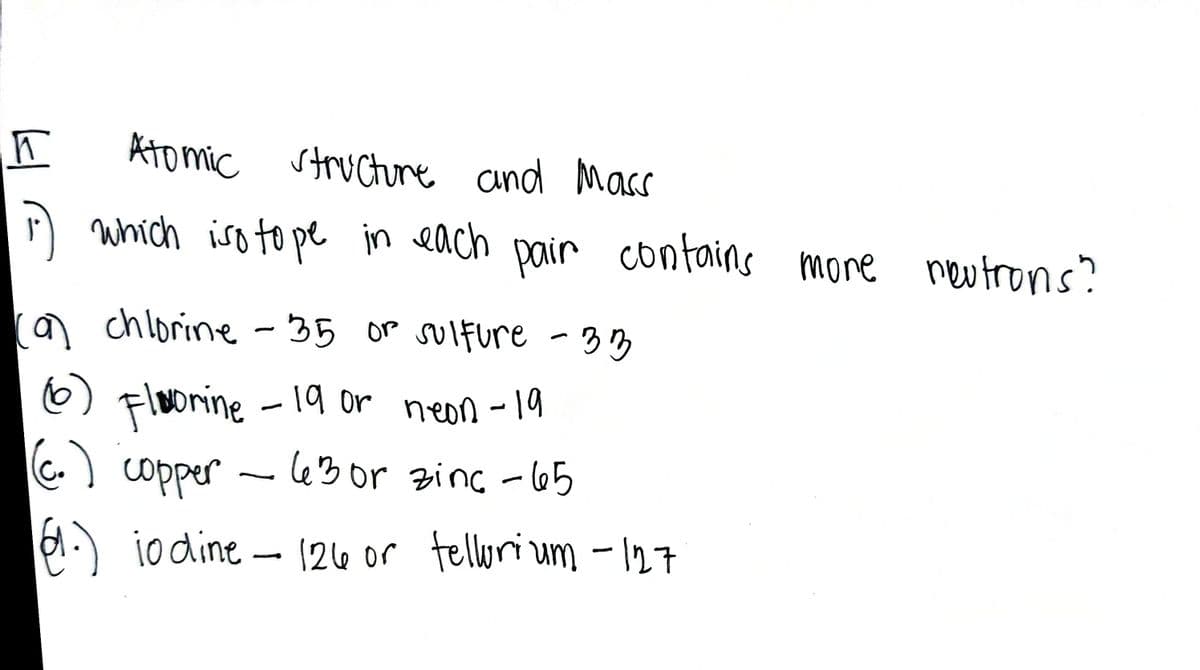 II Atomic structure and Mass
1.) which isotope in each pair contains more neutrons?
(a) chlorine - 35 or sulfure - 33
(b) Fluorine - 19 or neon - 19
(c.) copper - 63 or zinc - 65
(d.) iodine - 126 or tellurium - 127